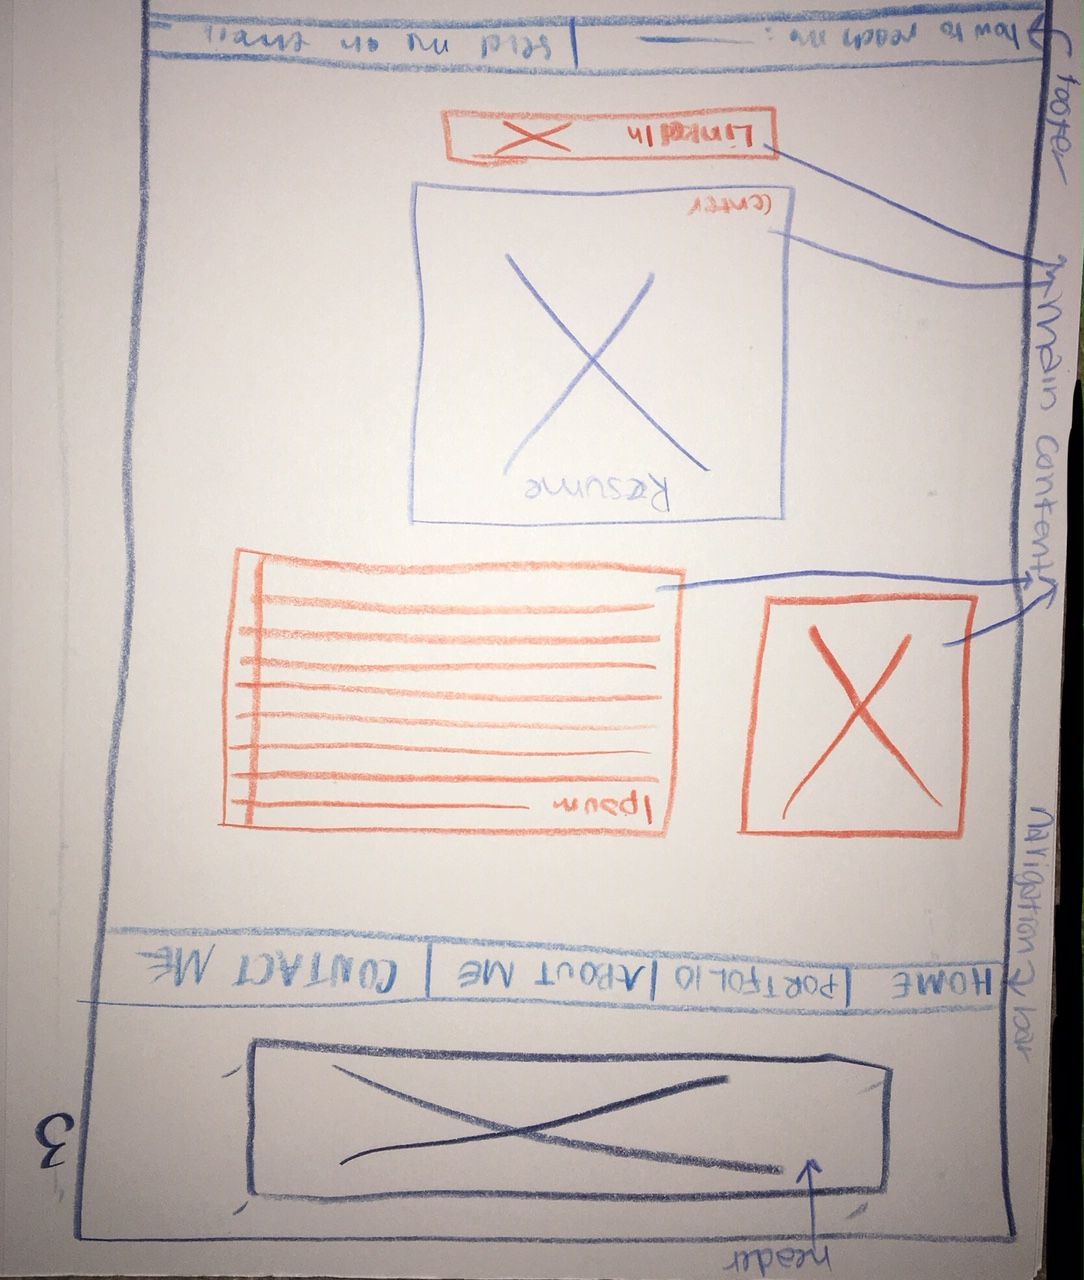 header
3
navigation bar
HOME
PORTFOLIO
ABOUT ME
CONTACT ME
Ipsum
main content
Resume
center
LinkedIn
footer
how to reach me:
send me an email